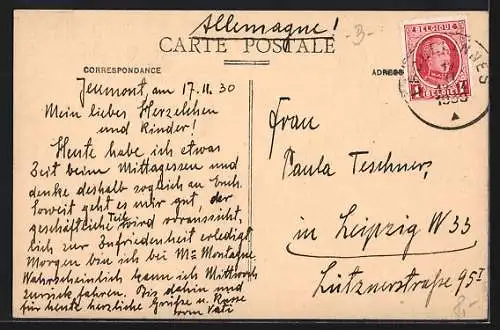 Allemagne!
-3-
CARTE POSTALE
CORRESPONDANCE
ADRESSE
BELGIQUE
1F
Jeumont, am 17.11.30
Mein liebes Herzelchen
und Kinder!
Heute habe ich etwas
Zeit beim Mittagessen und
denke deshalb sogleich an Euch.
Soweit geht es mir gut, der
geschäftliche Teil wird voraussicht-
lich zur Zufriedenheit erledigt.
Morgen bin ich bei Mr Montagne
Wahrscheinlich kann ich Mittwoch
zurück fahren. Bis dahin und
für heute herzliche Grüße u. Küsse
vom Vati
Frau
Paula Teschner,
in Leipzig W 33
Lütznerstraße 95 I
8,-